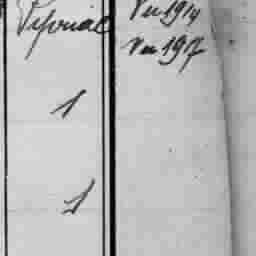 Vu 1914
Vu 1917
1
1